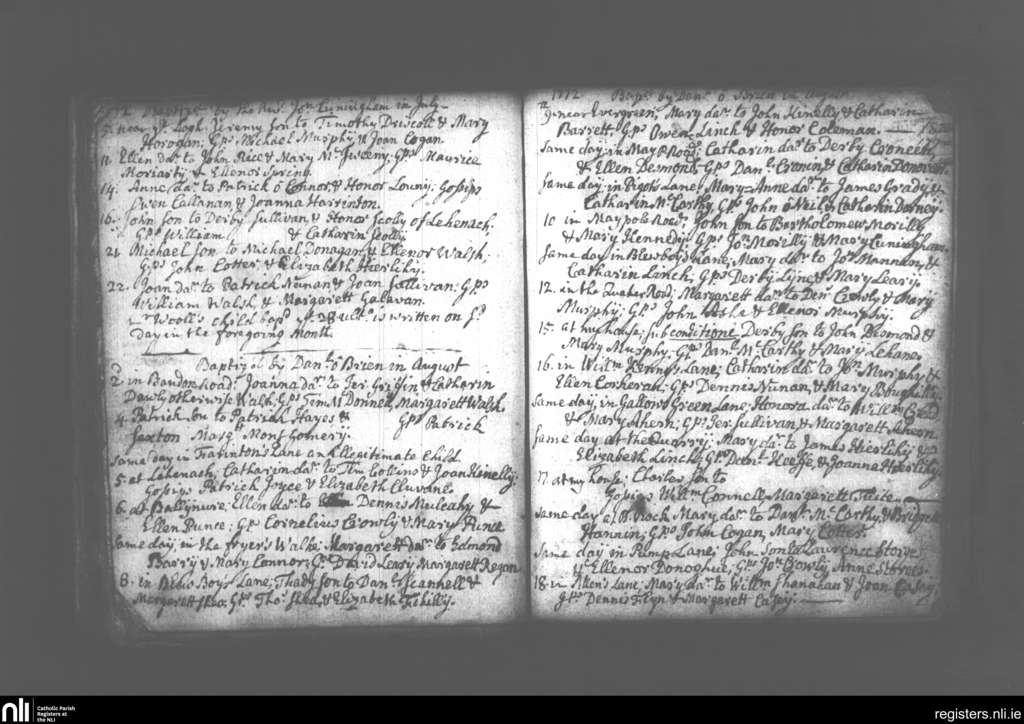 1772 Baptiz'd by the Revd. Jon Cuningham in July
near ye Logh. Jeremy Son to Timothy Driscoll & Mary
Horogan. Gps. Michael Murphy & Joan Cogan.
11 Ellen dar. to John Rice & Mary Mc Jeremy: Gps. Maurice
Moriarty & Ellenor Spring.
14. Anne, dar. to Patrick ó Connor & Honor . Gosips
Owen Callanan & Joanna Harrinton.
16. John Son to Derby Sullivan & Honor Scolly of Lehenach.
Gps. William & Catharin Scolly
21 Michael Son to Michael Donagan & Ellenor Walsh.
Gps. John Cotter & Elizabeth Hierlihy.
22. Joan dar. to Patrick Nunan & Joan Sullivan: Gps
William Walsh & Margarett Galavan.
Wooll's child bapd. ye 28 ulto. is written on
day in the foregoing month.
Baptiz'd by Danl. ó Brien in August
2 in Bandon Road: Joanna dar. to Jer. Griffin & Catharin
Dawly otherwise Walsh; Gps. Tim. Mc Donnell, Margarett Walsh
4. Patrick Son to Patrick Hayes & Gps Patrick
Saxton Marg. Montgomery.
Same day in Lane an illegitimate child
5. at Lehenach, Catharin dar. to Tim Collins & Joan Kinelly:
Gosips Patrick Joyce & Elizabeth
6. at Ballynure, Ellen dar. to Dennis Muleahy &
Ellen Punce: Gps. Cornelius Crowly & Mary Punce
Same day, in the fryer's Walke Margarett dar. to Edmond
Barry & Mary Connor; Gps. David Leary, Margarett Regan
8. in Blew Boy Lane, Thady Son to Danl. Scannell &
Margarett Shea: Gps. Thos. Shea, & Elizabeth
1772 Bapd. by Danl. ó Brien in August
9 near Evergreen, Mary dar. to John Kinelly & Catharin
Barrett, Gps. Owen Lanch & Honor Coleman.
Same day; in May Road; Catharin dar. to Derby Croneen
& Ellen Desmond, Gps Danl. Cronin & Catharin Donovan
Same day, in Pigot's Lane, Mary-Anne dar. to James Grady &
Catharin Mc Carthy. Gps. John ó Neil & Catharin Dorney.
10 in Maypole Road. John Son to Bartholomew Morilly
& Mary Kennedy. Gps. Jon. Morilly & Mary Cuningham
Same day in Blewboys Lane; Mary dar. to Jon. Hannan, &
Catharin Lanch, Gps. Derby Lyne & Mary Leary.
12. in the Quaker Road; Margarett dar. to Denis Crowly & Mary
Murphy; Gps. John & Ellenor Murphy.
15. at my house; sub conditione Derby Son to John Desmond &
Mary Murphy, Gps. Danl. Mc Carthy & Mary Lehane
16. in Willm. Kenny's Lane; Catharin dar. to Jon. Murphy &
Ellen Corkeran; Gps. Dennis Nunan, & Mary
Same day, in Gallows Green Lane; Honora dar. to Willm.
& Mary Ahern; Gps. Jer. Sullivan & Margarett Ahern
Same day at the Quarry: Mary dar. to James Hierlihy &
Elizabeth Linch; Gps. Danl. Keeffe, & Joanna Hierlihy
17. at my house; Charles Son to
Gosips Willm. Connell, Margarett
Same day, at Mary dar. to Danl. Mc Carthy & Bridgett
Hannin; Gps. John Cogan, Mary Cotter.
Same day in Pump Lane; John Son to Laurence
& Ellenor Donoghue, Gps. Jon. Crowly, Anne
18. in Allen's Lane; Mary dar. to Willm. Shanahan & Joan Casey
Gps. Dennis Flyn & Margarett Casey.
nli
Catholic Parish
Registers at
the NLI
registers.nli.ie